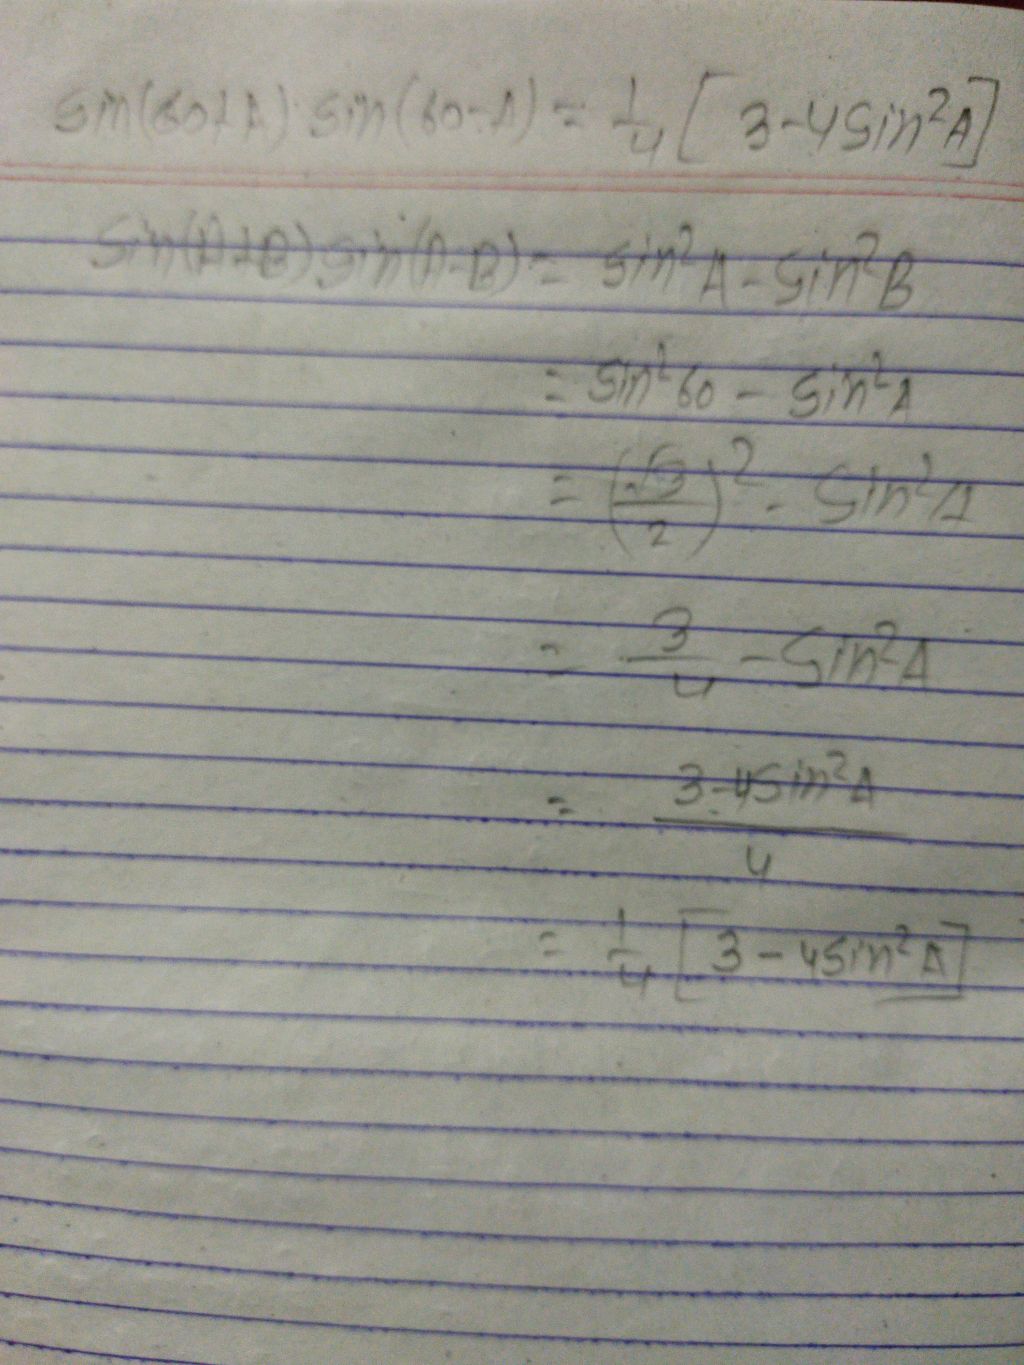 sin(60+A) sin(60-A) = 1/4 [3-4sin²A]
sin(A+B).sin(A-B) = sin²A - sin²B
= sin²60 - sin²A
= (√3/2)² - sin²A
= 3/4 - sin²A
= 3-4sin²A/4
= 1/4 [3 - 4sin²A]